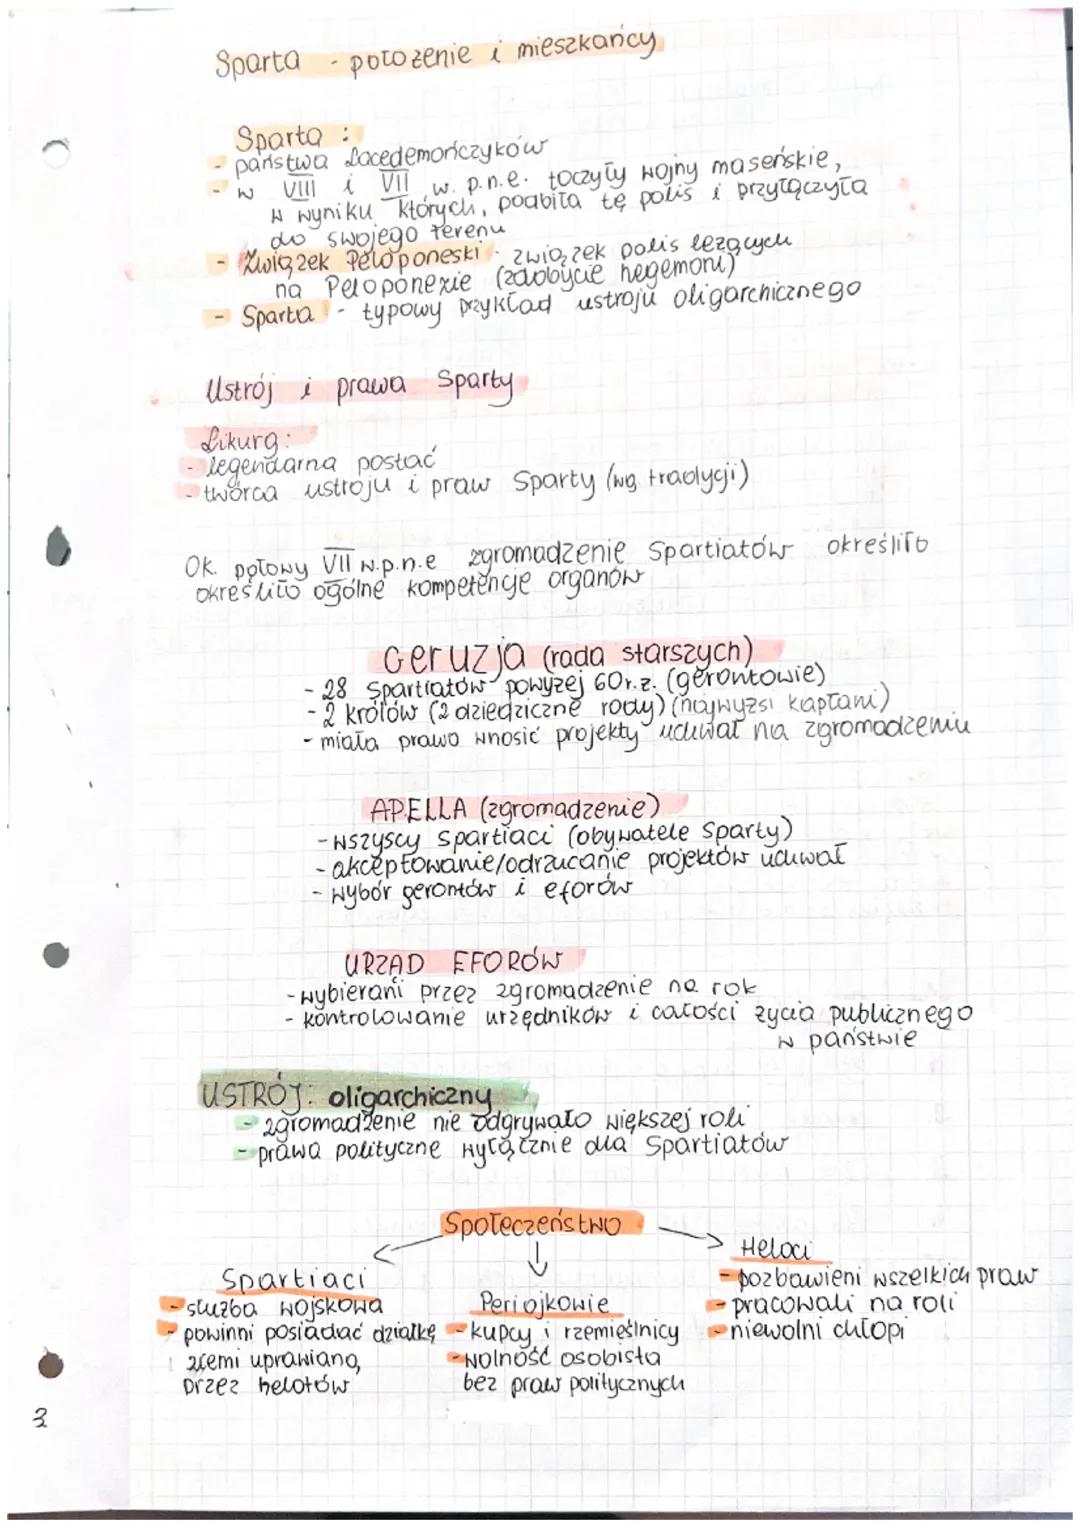 Sparta - położenie i mieszkańcy
Sparta :
- państwa Lacedemończyków
- w VIII i VII w. p.n.e. toczyły wojny maseńskie,
w wyniku których, podbiła tę polis i przyłączyła
do swojego terenu
- Związek Peloponeski - związek polis leżących
na Peloponezie (zdobycie hegemoni)
- Sparta - typowy przykład ustroju oligarchicznego
Ustrój i prawa Sparty
Likurg:
- legendarna postać
- twórca ustroju i praw Sparty (wg. tradycji)
Ok. połowy VII w.p.n.e zgromadzenie Spartiatów określiło
określiło ogólne kompetencje organów
Geruzja (rada starszych)
- 28 Spartiatów powyżej 60r.ż. (gerontowie)
- 2 królów (2 dziedziczne rody) (najwyżsi kapłani)
- miała prawo wnosić projekty uchwał na zgromadzeniu
APELLA (zgromadzenie)
- wszyscy spartiaci (obywatele Sparty)
- akceptowanie/odrzucanie projektów uchwał
- wybór gerontów i eforów
URZĄD EFORÓW
- wybierani przez zgromadzenie na rok
- kontrolowanie urzędników i całości życia publicznego
w państwie
USTRÓJ: oligarchiczny
- zgromadzenie nie odgrywało większej roli
- prawa polityczne wyłącznie dla Spartiatów
Społeczeństwo
Spartiaci
- służba wojskowa
- powinni posiadać działkę
ziemi uprawianą,
przez helotów
Periojkowie
- kupcy i rzemieślnicy
- wolność osobista
bez praw politycznych
Heloci
- pozbawieni wszelkich praw
- pracowali na roli
- niewolni chłopi
3